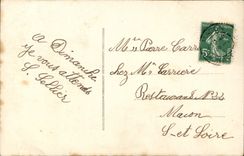 A Dimanche
je vous attends
S. Sellier
Mr Pierre Carr
chez Mr Carriere
Restaurant No 34
Macon
S-et Loire
5